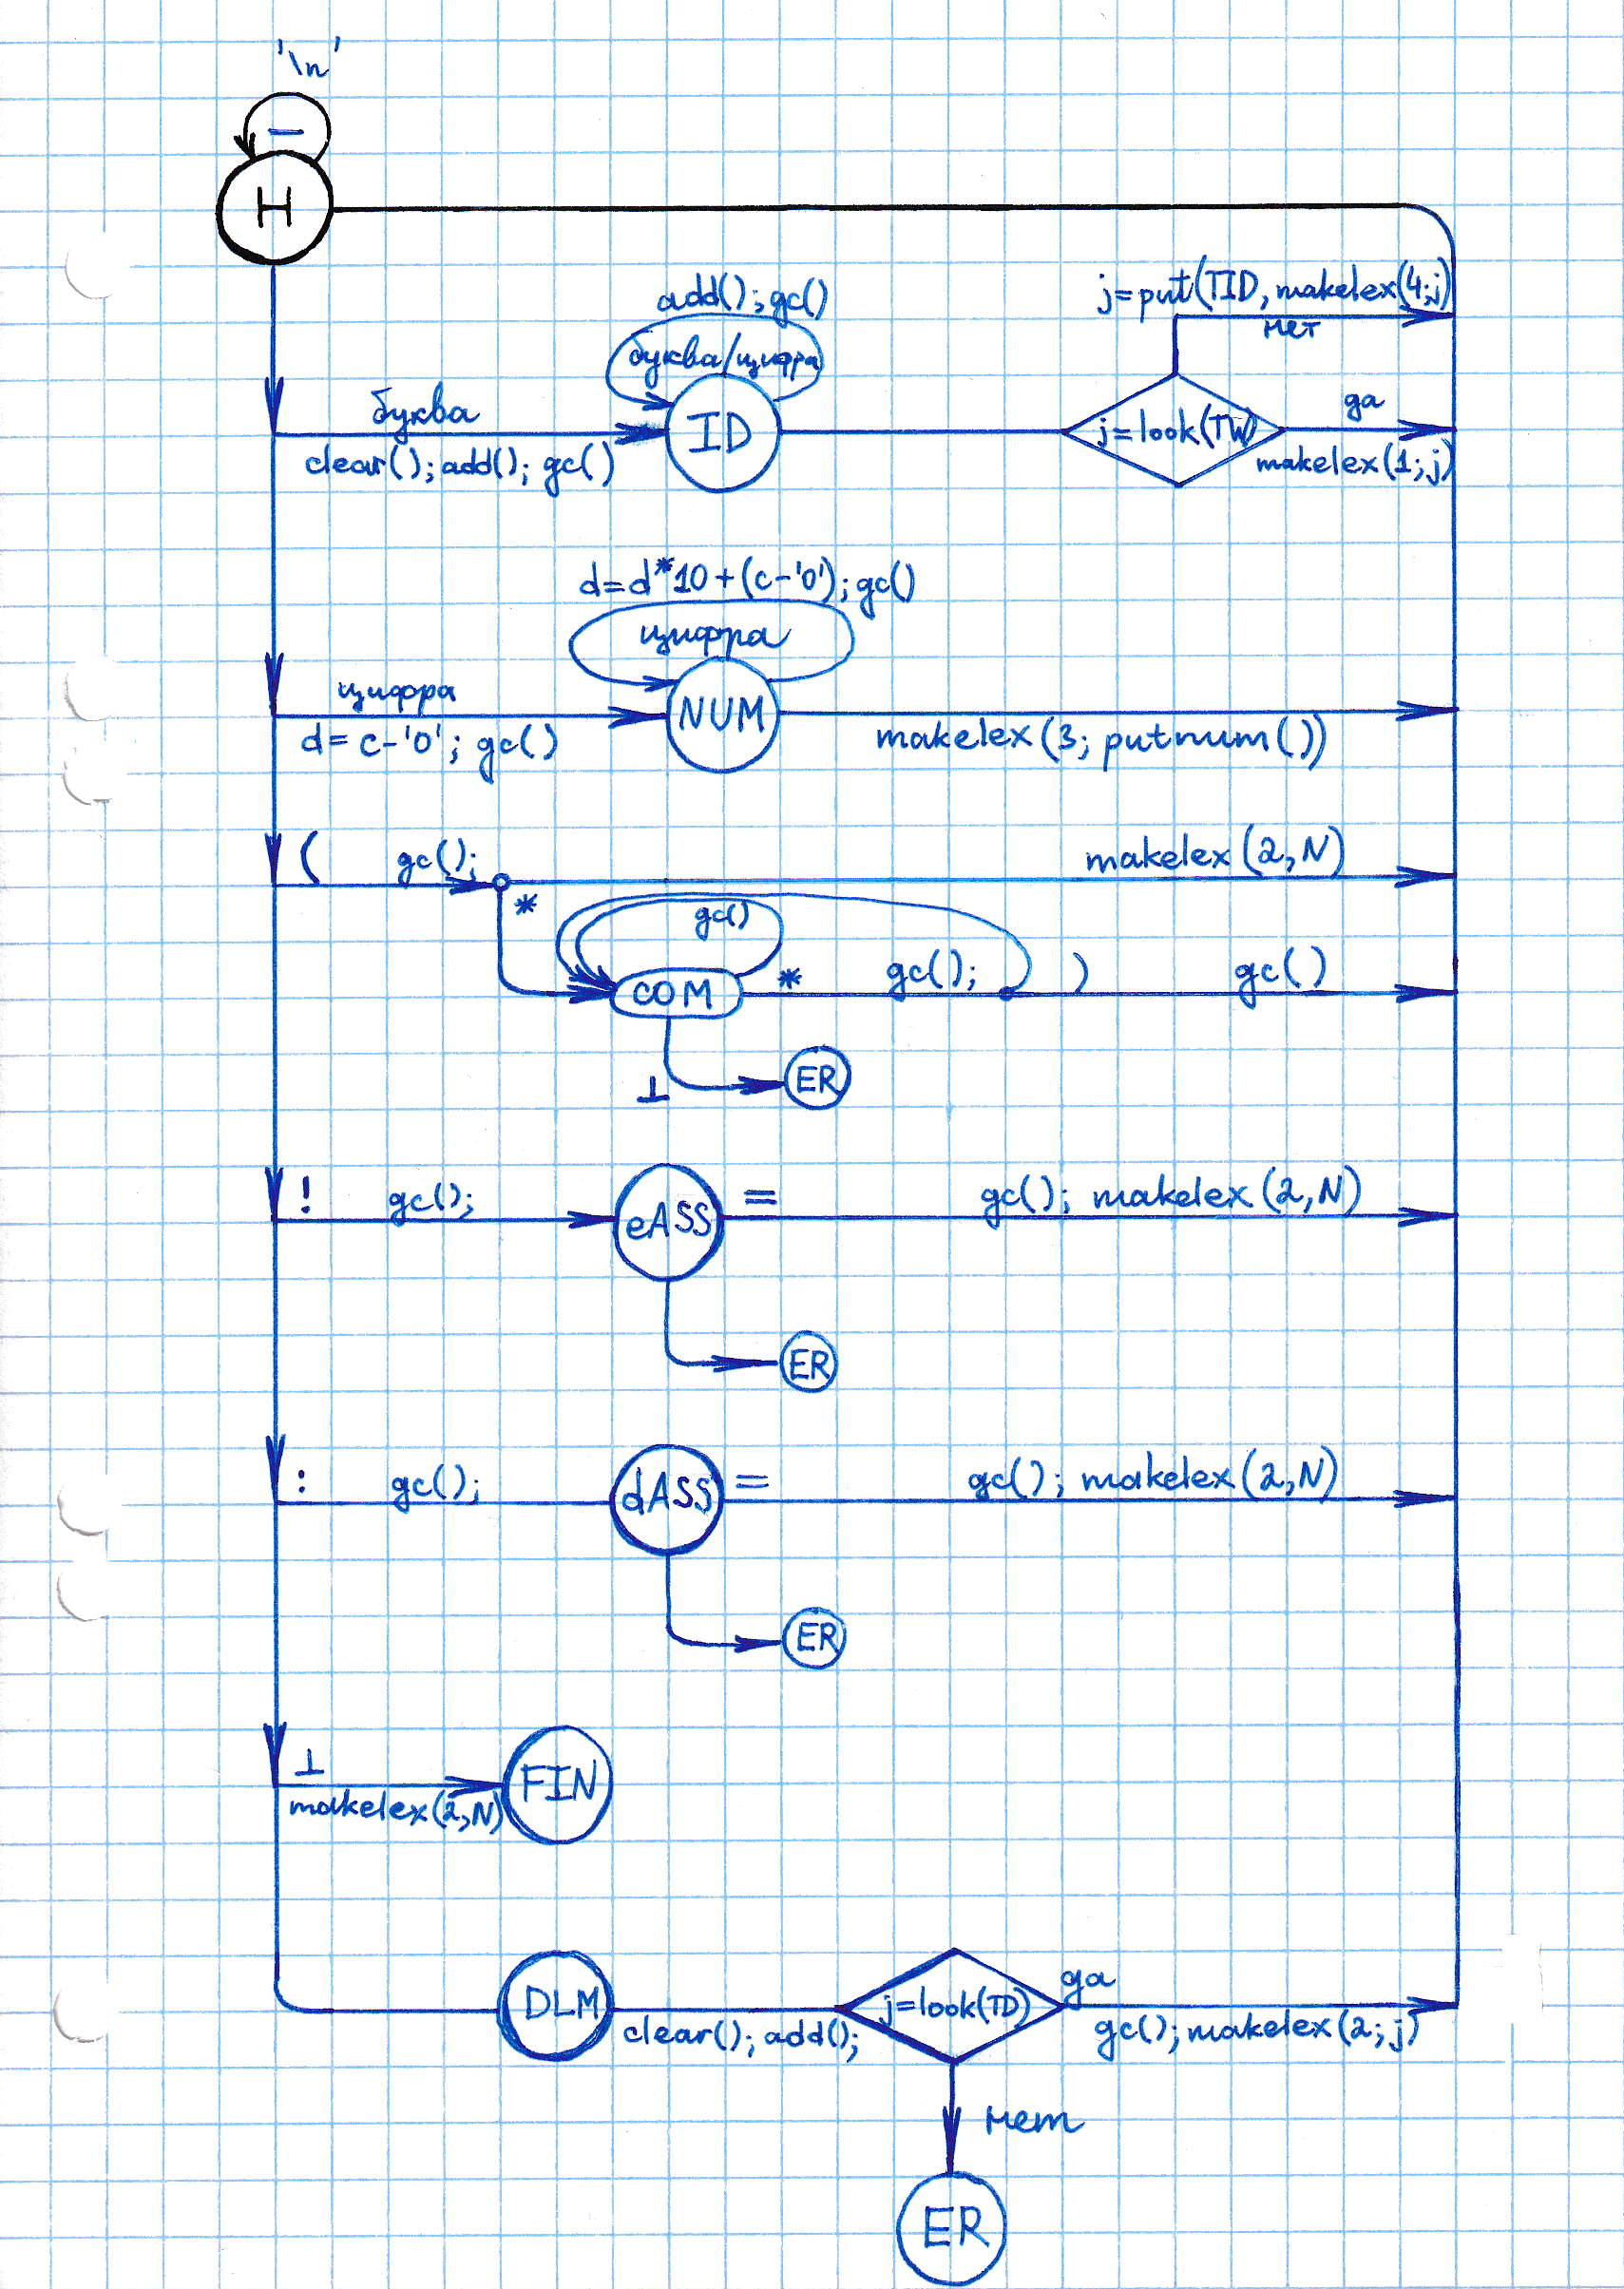 '\n'
–
H
add(); gc()
буква/цифра
j=put(TID, makelex(4;j)
нет
буква
ID
j=look(TW)
да
clear(); add(); gc()
makelex(1;j)
d=d*10+(c-'0'); gc()
цифра
цифра
NUM
d=c-'0'; gc()
makelex(3; putnum())
( gc();
makelex(2,N)
*
gc()
COM
* gc(); ) gc()
⊥
ER
! gc();
eASS
= gc(); makelex(2,N)
ER
: gc();
dASS
= gc(); makelex(2,N)
ER
⊥
makelex(2,N)
FIN
DLM
clear(); add();
j=look(TD)
да
gc(); makelex(2;j)
нет
ER